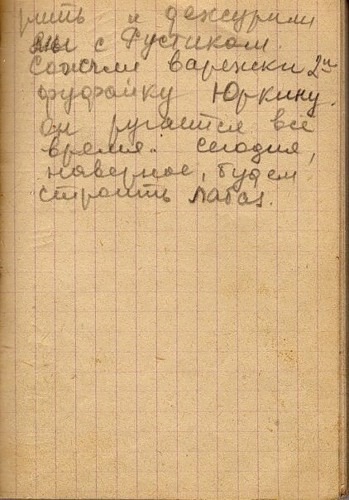 рить и дежурили
мы с Рустиком.
Сожгли варежки 2ую
фуфайку Юркину.
он ругается всё
время. Сегодня,
наверное, будем
строить лабаз.